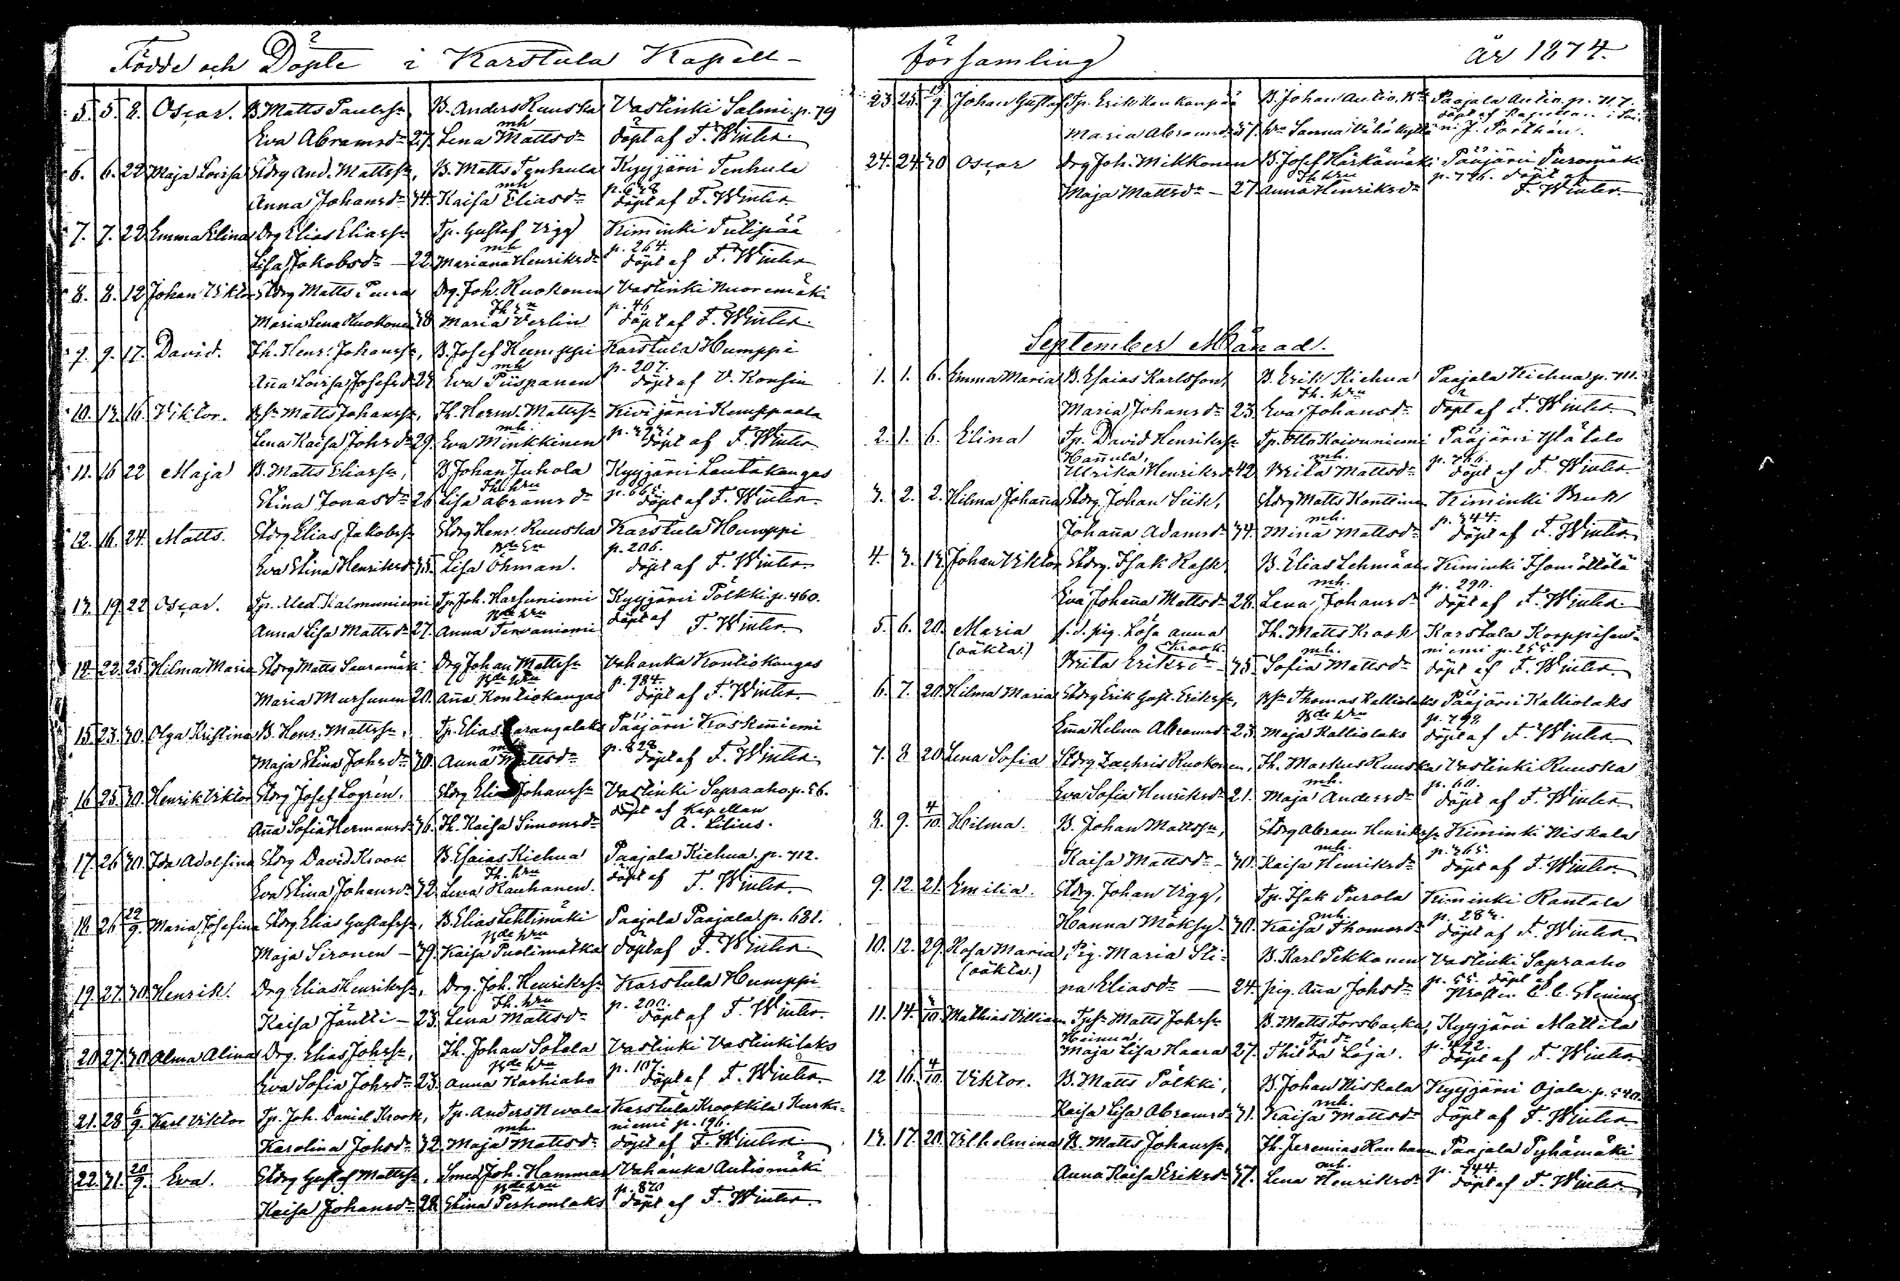 Födde och Döpte i Karstula Kapell-
5. 5. 8. Oscar. B. Matts Paulss, B. Anders Ruuska Vastinki Salmi p. 79
Eva Abramsd 27. mh Lena Mattsd döpt af F. Winter.
6. 6. 22 Maja Lovisa And. Mattss, B. Matts Tenhula Kyyjärvi Tenhula
Anna Johansd 34. mh Kaisa Eliasd p. 628 döpt af F. Winter.
7. 7. 22 Emma Elina Drg Elias Eliass Tp. Gustaf Vigg Kiminki Tulipää
Lisa Jakobsd 22. mh Mariana Henriksd p. 264. döpt af F. Winter
8. 8. 12 Johan Viktor Matts Puura Drg. Joh. Ruokonen Vastinki Nuoremäki
Maria Lena Ruokonen 38 Maria Verlin p. 46 döpt af F. Winter.
9. 9. 17. David. Th. Henr. Johanss, B. Josef Humppi Karstula Humppi
Anna Lovisa Josefsd 24 mh Eva Piispanen p. 207. döpt af V. Konsin
10. 13. 16. Viktor. Matts Johanss, Th. Herm. Mattss Kivijärvi Kumppala
Lena Kaisa Johsd 29. mh. Eva Minkkinen döpt af F. Winter
11. 16 22 Maja B. Matts Eliass, B Johan Juhola Kyyjärvi Lautakangas
Stina Jonasd 26 Th. hru Lisa Abramsd döpt af F. Winter.
12. 16. 24. Matts. Elias Jakobss Henr. Ruuska Karstula Humppi
Eva Stina Henriksd 35. Lisa Öhman. p. 206. döpt af F. Winter
13. 19. 22 Oscar. Tp. Med. Kalmuniemi Tp. Joh. Harjuniemi Kyyjärvi Pölkki p. 460.
Anna Lisa Mattsd 27. Anna Tervaniemi döpt af F. Winter.
14. 22. 25. Hilma Maria Matts Saaremäki Drg Johan Mattss Vahanka Kontiokangas
Maria Mursunen 20. Anna Kontiokangas p. 984. döpt af F. Winter.
15. 23. 30. Olga Kristina B. Henr. Mattss, Tp. Elias Pääjärvi Koskiniemi
Maja Stina Johsd 30. Anna Mattsd p. 828 döpt af F. Winter.
16 25. 30. Henrik Viktor Josef Logrén. Elias Johanss Vastinki Sapraaho p. 56.
Anna Sofia Hermansd 36. Th. Kaisa Simonsd döpt af Kapellan A. Lilius.
17. 26 30. Ida Adolfina David Krook B. Esaias Kiehua Paajala Kiehua. p. 712.
Eva Stina Johansd 32. Th. hru Lena Kauhanen. döpt af F. Winter.
18. 26 22/9. Maria Josefina Elias Gustafss, B. Elias Lehtimäki Paajala Paajala p. 681.
Maja Sironen 39. Kaisa Puolimatka döpt af F. Winter.
19. 27. 30. Henrik. Drg Elias Henrikss, Drg. Joh. Henrikss Karstula Humppi
Kaisa Jantti 23. Th. hru Lena Mattsd p. 200. döpt af F. Winter
20. 27. 30 Alma Alina Drg. Elias Johss, Th. Johan Sokola Vastinki Vastinkilaks
Eva Sofia Johsd 23. Anna Karhiaho p. 107. döpt af F. Winter.
21. 28 6/9. Karl Viktor Tp. Joh. Daniel Krook, Tp. Anders Nevala Karstula Krookkila Kurki-
Karolina Johsd 32. mh. Maja Mattsd niemi p. 196. döpt af F. Winter.
22. 31. 20/9. Eva. Gustaf Mattss, Smed Joh. Hammar Vahanka Autiomäki
Kaisa Johansd 28. Stina Peskonlaks p. 870 döpt af F. Winter.
församling år 1874.
23. 25. 19/9 Johan Gustaf Tp. Erik Kankanpää B. Johan Autio. Paajala Autio. p. 717.
Maria Abramsd 37. Sanna Vähäkyllä
24. 24. 30 Oscar Drg Joh. Mikkonen B. Josef Härkämäki Pääjärvi Puromäki
Maja Mattsd 27 Th. hru Anna Henriksd p. 776. döpt af F. Winter.
September Månad.
1. 1. 6. Emma Maria B. Esaias Karlsson, B. Erik Kiehua Paajala Kiehua p. 711.
Maria Johansd 23. Th. hru Eva Johansd döpt af F. Winter.
2. 1. 6. Elina Tp. David Henrikss Tp. Otto Koivuniemi Pääjärvi Ylätalo
Hannula, Ulrika Henriksd 42 mh. Brita Mattsd p. 766. döpt af F. Winter.
3. 2. 2. Hilma Johanna Johan Siik, Matts Kanttinen Kiminki Kruk
Johanna Adamsd 34. mh. Miina Mattsd p. 344. döpt af F. Winter.
4. 3. 13. Johan Viktor Isak Rask, B. Elias Lehmäaho Kiminki Isomöttölä
Eva Johanna Mattsd 28. mh. Lena Johansd p. 290. döpt af F. Winter.
5. 6. 20. Maria f. d. pig. Lösa Anna Th. Matts Krook Karstula Korppisen-
(oäkta.) Krook Brita Eriksd 35. mh. Sofia Mattsd niemi p. 255. döpt af F. Winter.
6. 7. 20. Hilma Maria Erik Gust. Erikss, Thomas Kalliolaks Pääjärvi Kalliolaks
Emma Helena Abramsd 23. Maja Kalliolaks p. 792. döpt af F. Winter.
7. 8 20. Lena Sofia Zachris Ruokonen, Th. Markus Ruuska Vastinki Ruuska
Eva Sofia Henriksd 21. mh. Maja Andersd p. 60. döpt af F. Winter
8. 9. 4/10. Hilma. B. Johan Mattss, Abram Henrikss Kiminki Niskala
Kaisa Mattsd 30. mh. Kaisa Henriksd p. 365. döpt af F. Winter.
9. 12. 21. Emilia. Johan Vigg, Tp. Isak Purola Kiminki Rantala
Hanna Mökksy 30. mh. Kaisa Thomasd p. 283. döpt af F. Winter.
10. 12. 29. Rosa Maria Pig. Maria Sti- B. Karl Pekkonen Vastinki Sapraaho
(oäkta.) na Eliasd 24. pig. Anna Johsd p. 55. döpt af Prosten
11. 14. Mathias Villiam Matts Johss B. Matts Forsbacka, Kyyjärvi Mattila
Maja Lisa Haara 27. Thilda Löja. p. 492. döpt af F. Winter
12 16. 4/10. Viktor. B. Matts Pölkki, B. Johan Niskala Kyyjärvi Ojala. p. 540.
Kaisa Lisa Abramsd 31. mh. Kaisa Mattsd döpt af F. Winter
13. 17. 20. Vilhelmina B. Matts Johanss, Th. Jeremias Kauhanen Paajala Pyhämäki
Anna Kaisa Eriksd 37. mh. Lena Henriksd p. 744. döpt af F. Winter.